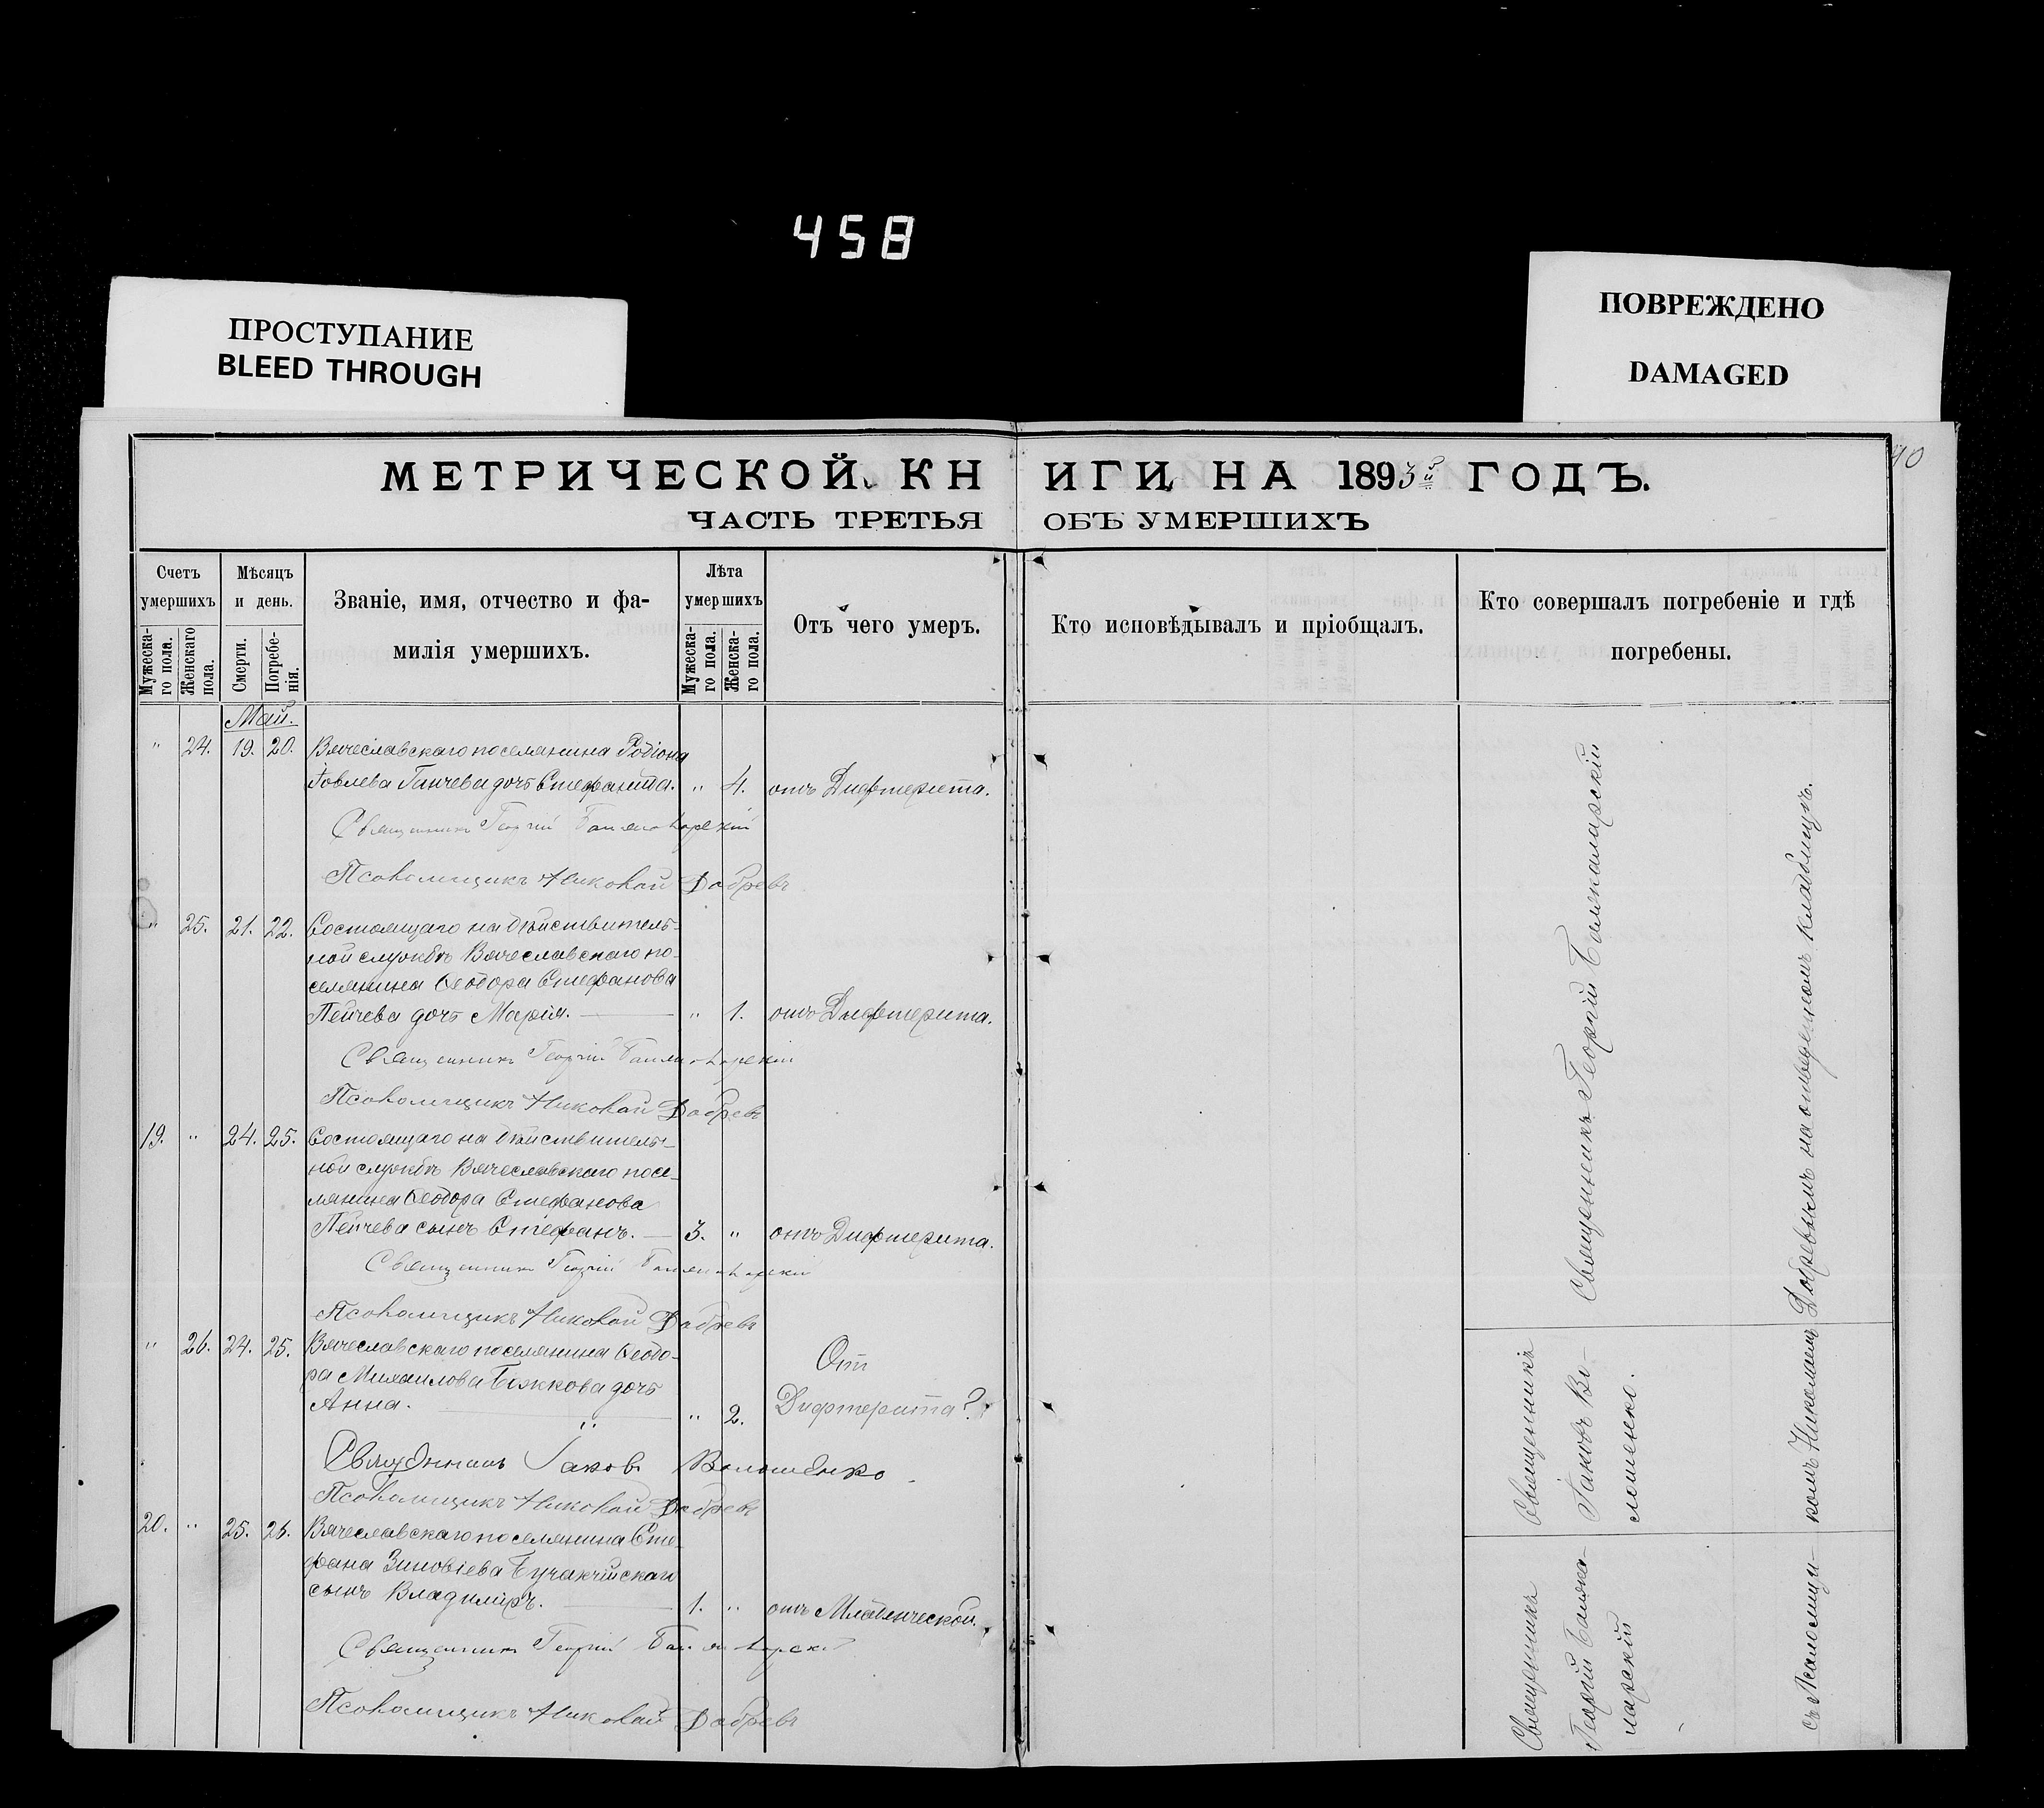 458
ПРОСТУПАНИЕ
BLEED THROUGH
ПОВРЕЖДЕНО
DAMAGED
40
МЕТРИЧЕСКОЙ КНИГИ НА 1893й ГОДЪ.
ЧАСТЬ ТРЕТЬЯ ОБЪ УМЕРШИХЪ
Счетъ умершихъ
Мужеска-го пола.
Женскаго пола.
Мѣсяцъ и день.
Смерти.
Погребе-нія.
Званіе, имя, отчество и фа-
милія умершихъ.
Лѣта умершихъ
Мужеска-го пола.
Женска-го пола.
Отъ чего умеръ.
Кто исповѣдывалъ и пріобщалъ.
Кто совершалъ погребеніе и гдѣ
погребены.
Май.
" 24. 19. 20. Вячеславскаго поселянина Родіона
Іовлева Ганчева дочь Стефанида. " 4. отъ Дифтерита.
Священникъ Георгій
Псаломщикъ Николай Добревъ
" 25. 21. 22. Состоящаго на дѣйствитель-
ной службѣ Вячеславскаго по-
селянина Ѳеодора Стефанова
Пейчева дочь Марія. " 1. отъ Дифтерита.
Священникъ Георгій
Псаломщикъ Николай Добревъ
19. " 24. 25. Состоящаго на дѣйствитель-
ной службѣ Вячеславскаго посе-
лянина Ѳеодора Стефанова
Пейчева сынъ Стефанъ. 3. " отъ Дифтерита.
Священникъ Георгій
Псаломщикъ Николай Добревъ
" 26. 24. 25. Вячеславскаго поселянина Ѳеодо-
ра Михаилова Божкова дочь
Анна. " 2. От Дифтерита?
Священникъ Іаковъ Волошенко
Псаломщикъ Николай Добревъ
20. " 25. 26. Вячеславскаго поселянина Сте-
фана Зиновіева
сынъ Владиміръ. 1. " отъ Младенческой.
Священникъ Георгій
Псаломщикъ Николай Добревъ
Священникъ Георгій
Священникъ
Іаковъ Во-
лошенко.
Священникъ
Георгій
съ Псаломщи-
комъ Николаемъ Добревымъ на отведенномъ кладбищѣ.